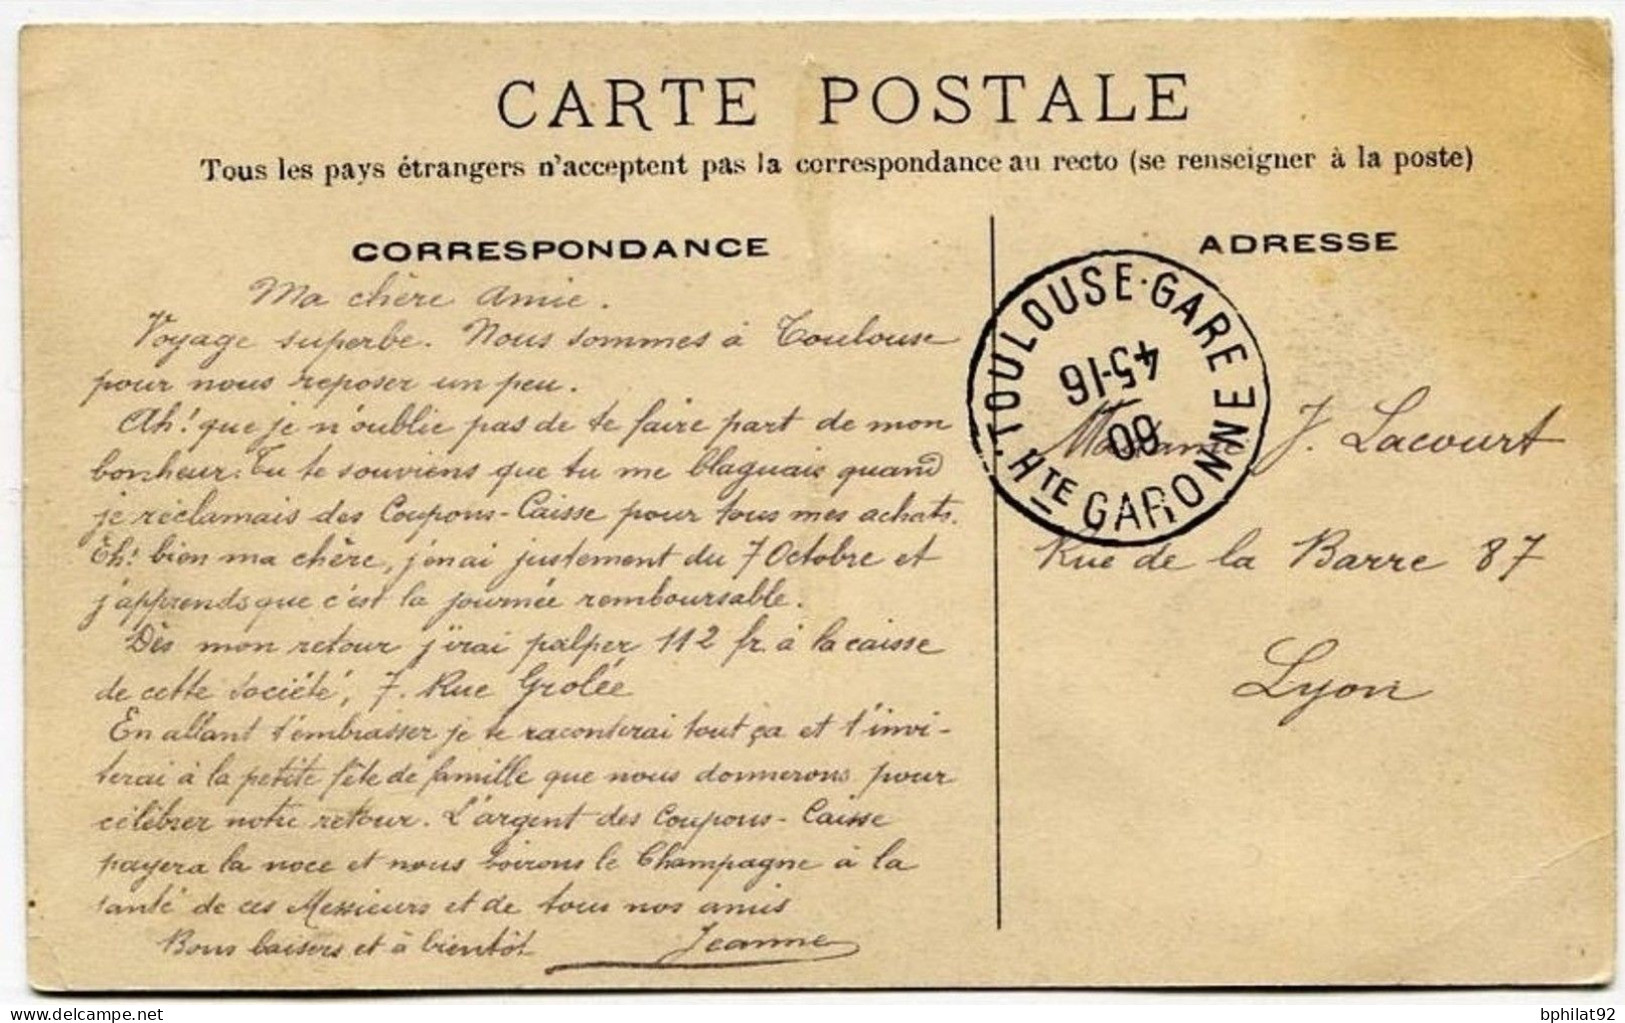 CARTE POSTALE
Tous les pays étrangers n'acceptent pas la correspondance au recto (se renseigner à la poste)
CORRESPONDANCE
Ma chère Amie.
Voyage superbe. Nous sommes à Toulouse
pour nous reposer un peu.
Ah! que je n'oublie pas de te faire part de mon
bonheur. Tu te souviens que tu me blaguais quand
je réclamais des Coupons-Caisse pour tous mes achats.
Eh! bien ma chère, j'en ai justement du 7 Octobre et
j'apprends que c'est la journée remboursable.
Dès mon retour j'irai palper 112 fr. à la caisse
de cette Société, 7. Rue Grolée
En allant t'embrasser je te raconterai tout ça et t'invi-
terai à la petite fête de famille que nous donnerons pour
célébrer notre retour. L'argent des Coupons-Caisse
payera la noce et nous boirons le Champagne à la
santé de ces Messieurs et de tous nos amis
Bons baisers et à bientôt Jeanne
ADRESSE
TOULOUSE-GARE
45-16
09
HTE GARONNE
Madame J. Lacourt
Rue de la Barre 87
Lyon
bphilat92